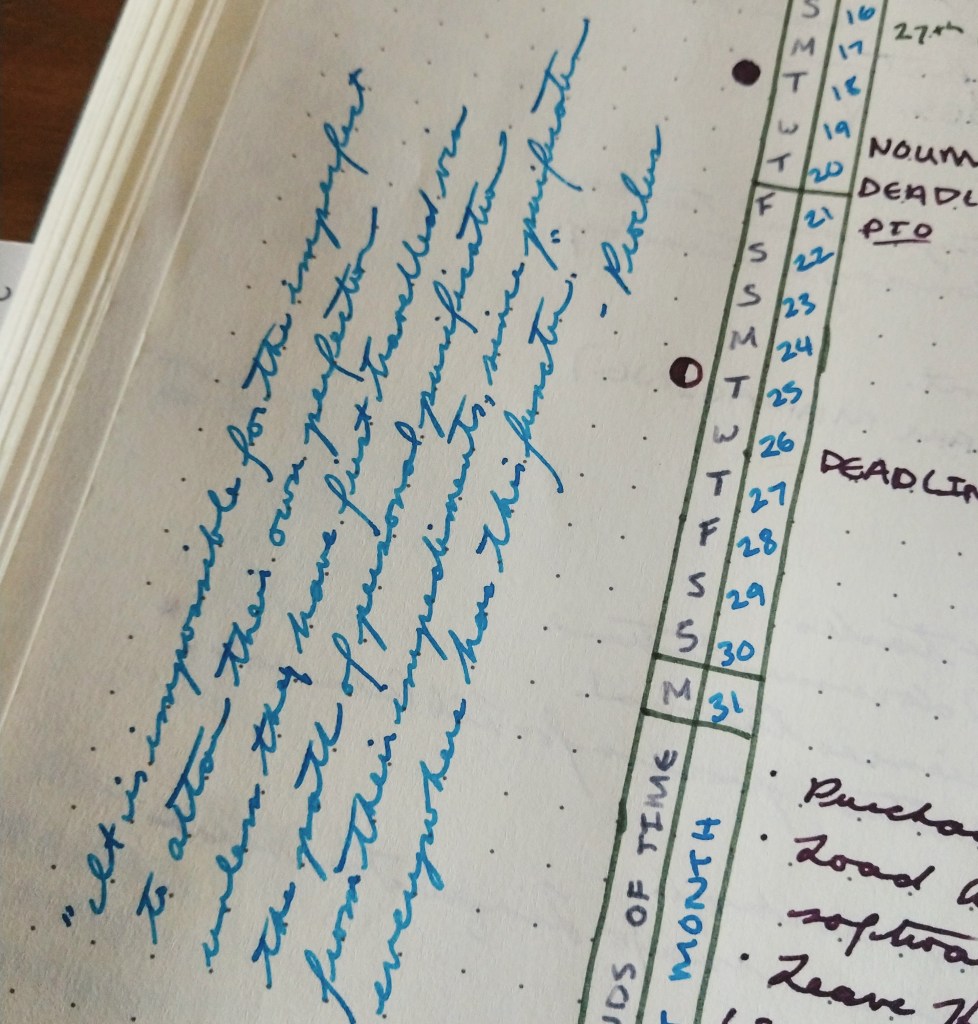 "It is impossible for the imperfect
to attain their own perfection
unless they have first travelled via
the path of personal purification
from their impediments, since purification
everywhere has this function."
- Proclus
S 16
M 17
T 18
W 19
T 20
F 21
S 22
S 23
M 24
T 25
W 26
T 27
F 28
S 29
S 30
M 31
OF TIME
MONTH
27th
NOUM
DEADL
PTO
DEADLIN
Purcha
Load
softwa
Leave